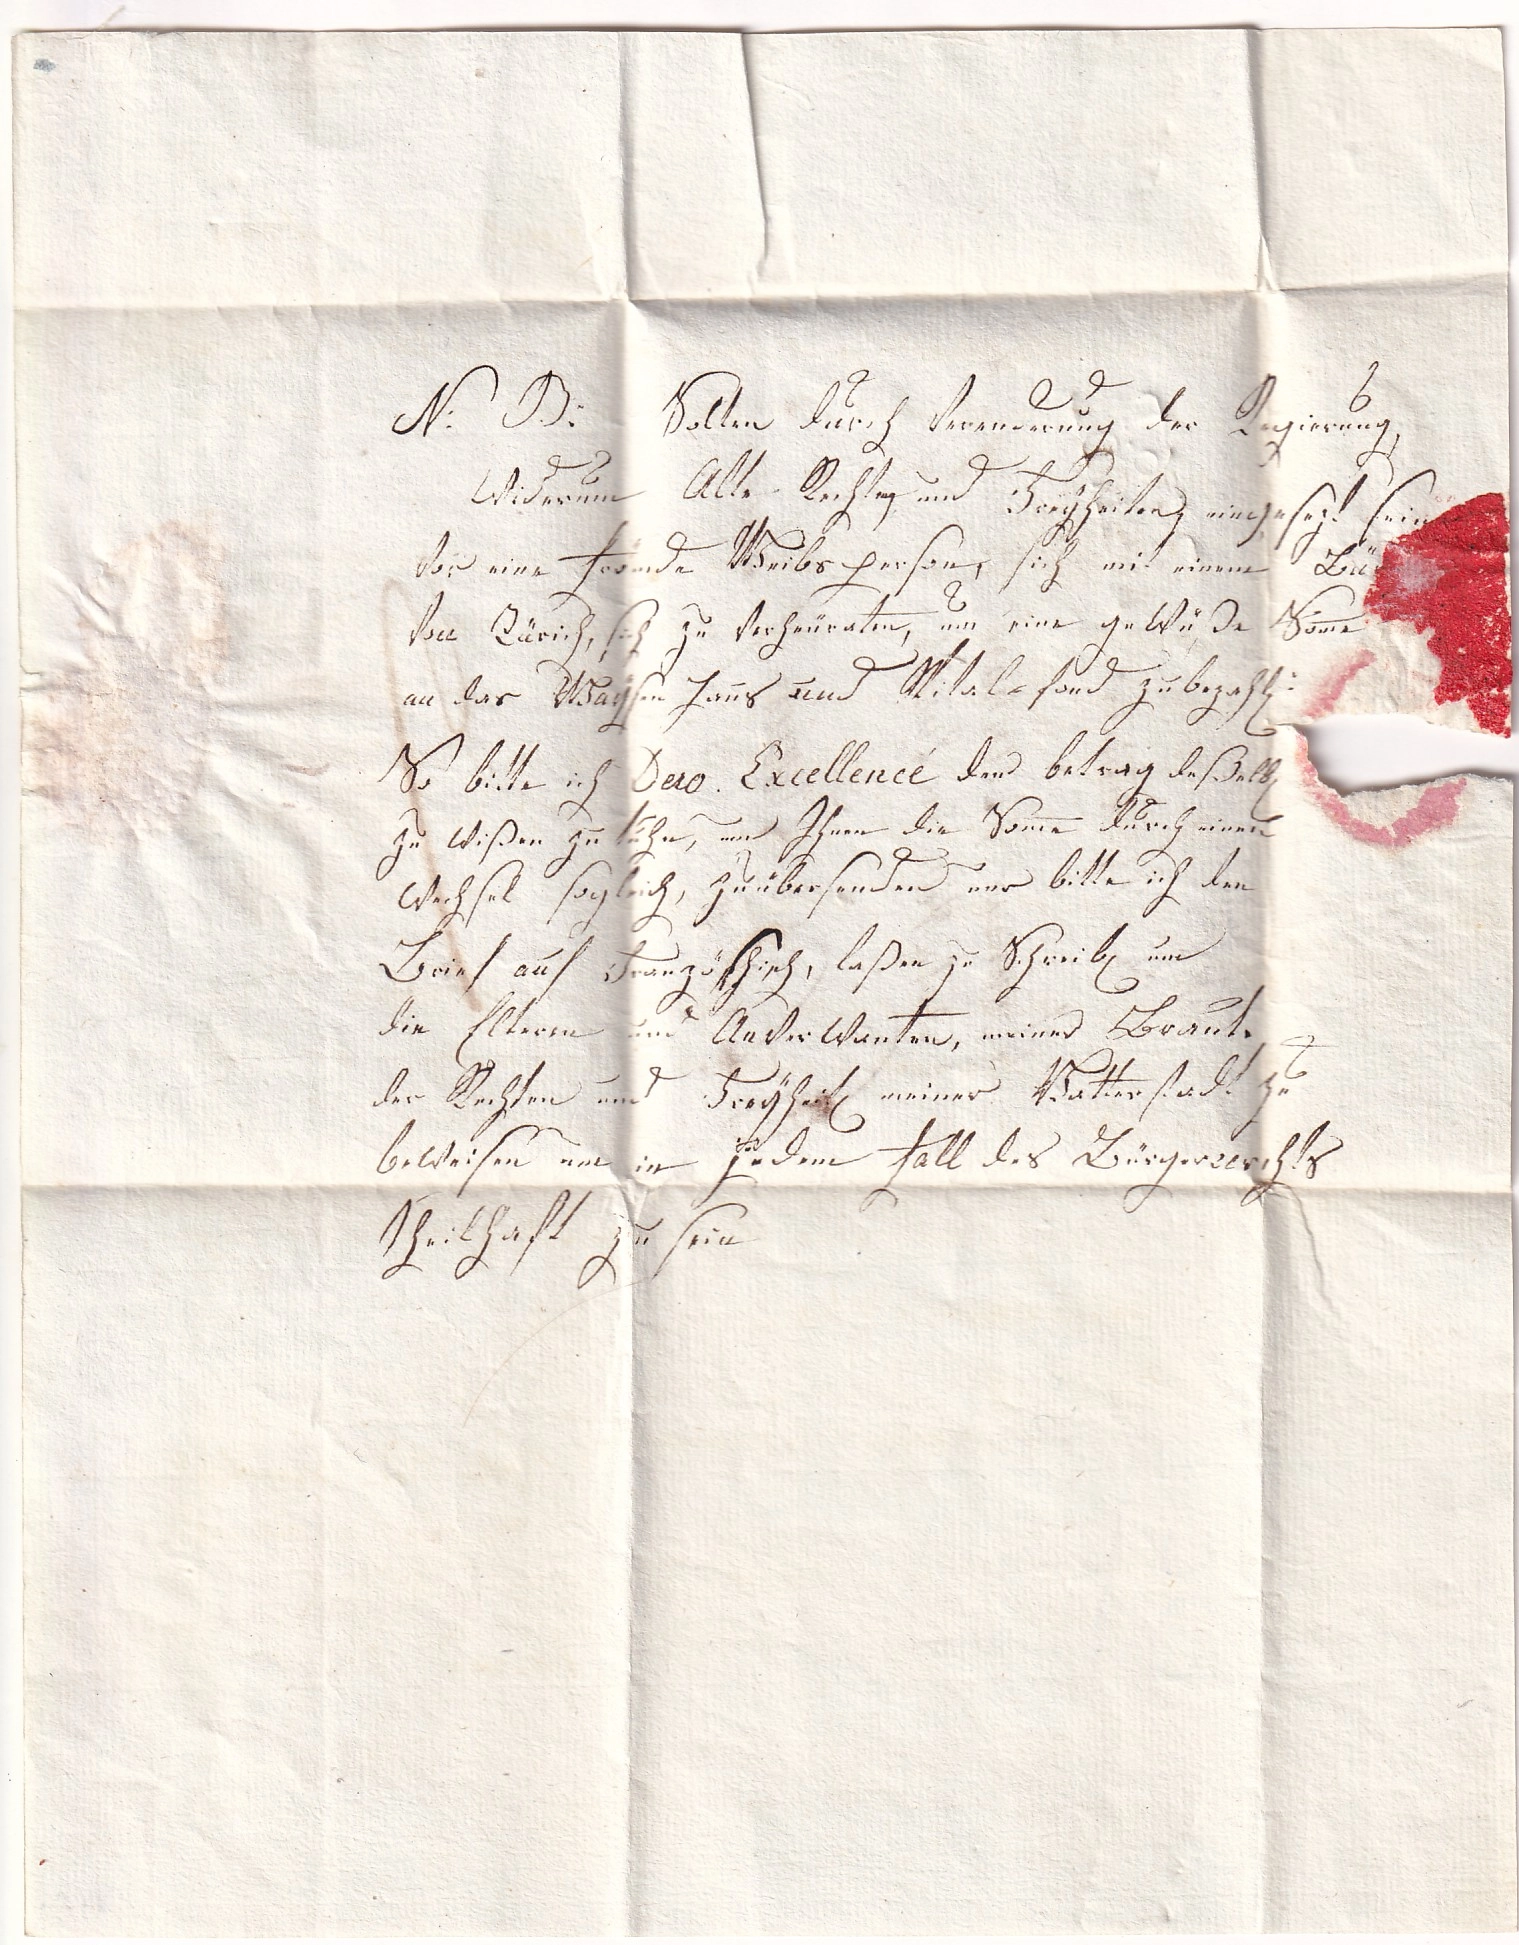 N: B: Solten durch Verenderung der Regierung,
Widerum Alte Rechten und Freÿheiten eingesezt sein
Vor eine fremde Weibsperson, sich mit einem Bür
Von Zürich, sich zu Verheüraten, um eine gewüße Some
an das Waÿsenhaus und Spital-fond zubezahlen:
So bitte ich Dero. Excellence den betrag deßelben
zu wißen zu tuhn, um Ihnen die Some durch einen
Wechsel sogleich, zuübersenden nur bitte ich den
Brief auf Französchisch, laßen zu Schreiben um
die Elteren und Anverwanten, meiner Braut
der Rechten und Freÿheiten meiner Vatterstadt zu
beweisen um in jedem fall des Bürgerrechts
theilhaft zu sein